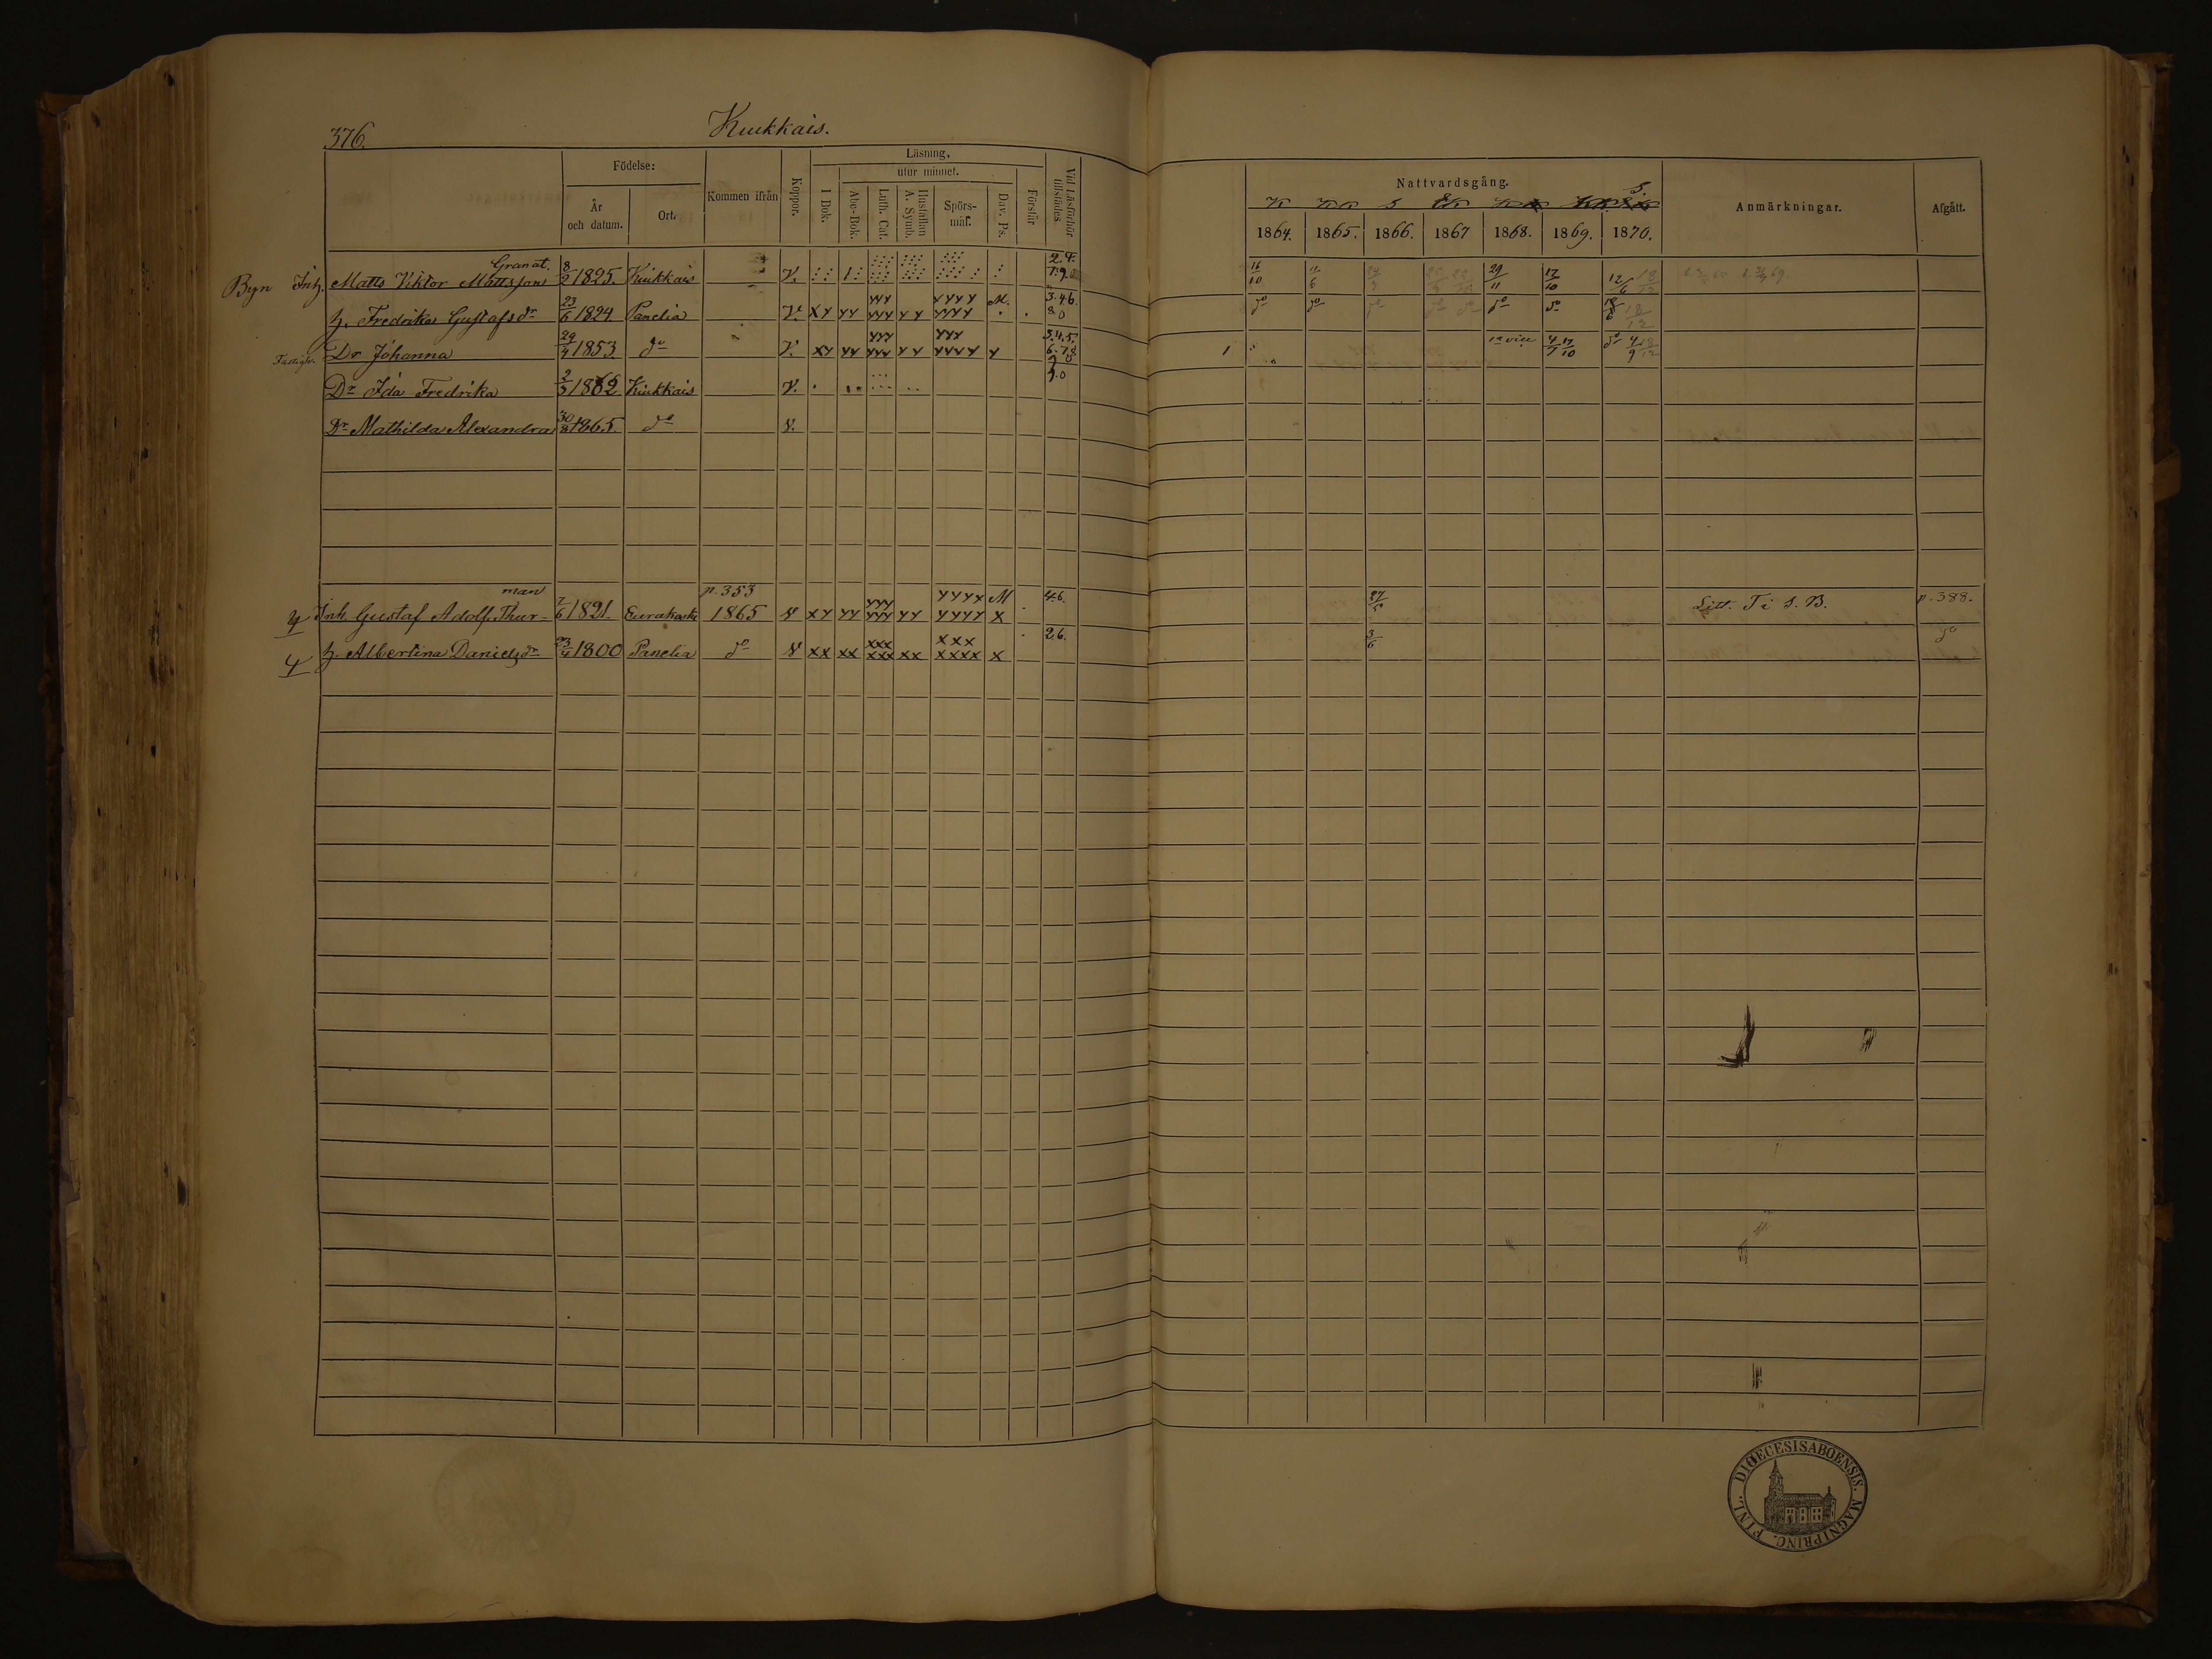 376.
Kiukkais.
Födelse:
År och datum.
Ort.
Kommen ifrån
Koppor.
Läsning.
utur minnet.
I Bok.
Abc-Bok.
Luth. Cat.
Hustaflan A. Symb.
Spörs-mål.
Dav. Ps.
Förstår
Vid Läsförhör tillstädes
Nattvardsgång.
1864. 1865. 1866. 1867 1868. 1869. 1870.
Anmärkningar.
Afgått.
Granat.
Byn Inh. Matts Viktor Mattsson 8/2 1825. Kiukkais V. 2.4. 7.9. 16/10 11/6 29/11 17/10 12/6
h. Fredrika Gustafsdr 23/6 1824 Panelia V. XY YY YYY YYY YY YYYY YYYY M. 3.4.6. 8 0 do do do do do do do
Dr Johanna 29/4 1853 do V. XY YY YYY YYY YY YYY YYYY Y 3.4.5. 6.7.8 1 4/7 17/10 do 4/9
Dr Ida Fredrika 2/3 1862 Kiukkais V. 9.0
Dr Mathilda Alexandra 30/8 1865. do V.
man p. 353
Inh. Gustaf Adolf. Thur- 7/6 1821. 1865 V XY YY YYY YYY YY YYYX YYYY M X 4.6. 27/5 Litt. T i S. B. p. 388.
h. Albertina Danielsdr 23/4 1800 Panelia do V XX XX XXX XXX XX XXX XXXX X 2.6. 3/6 do
FINL. DIOECESIS ABOENSIS. MAGNI PRINC.